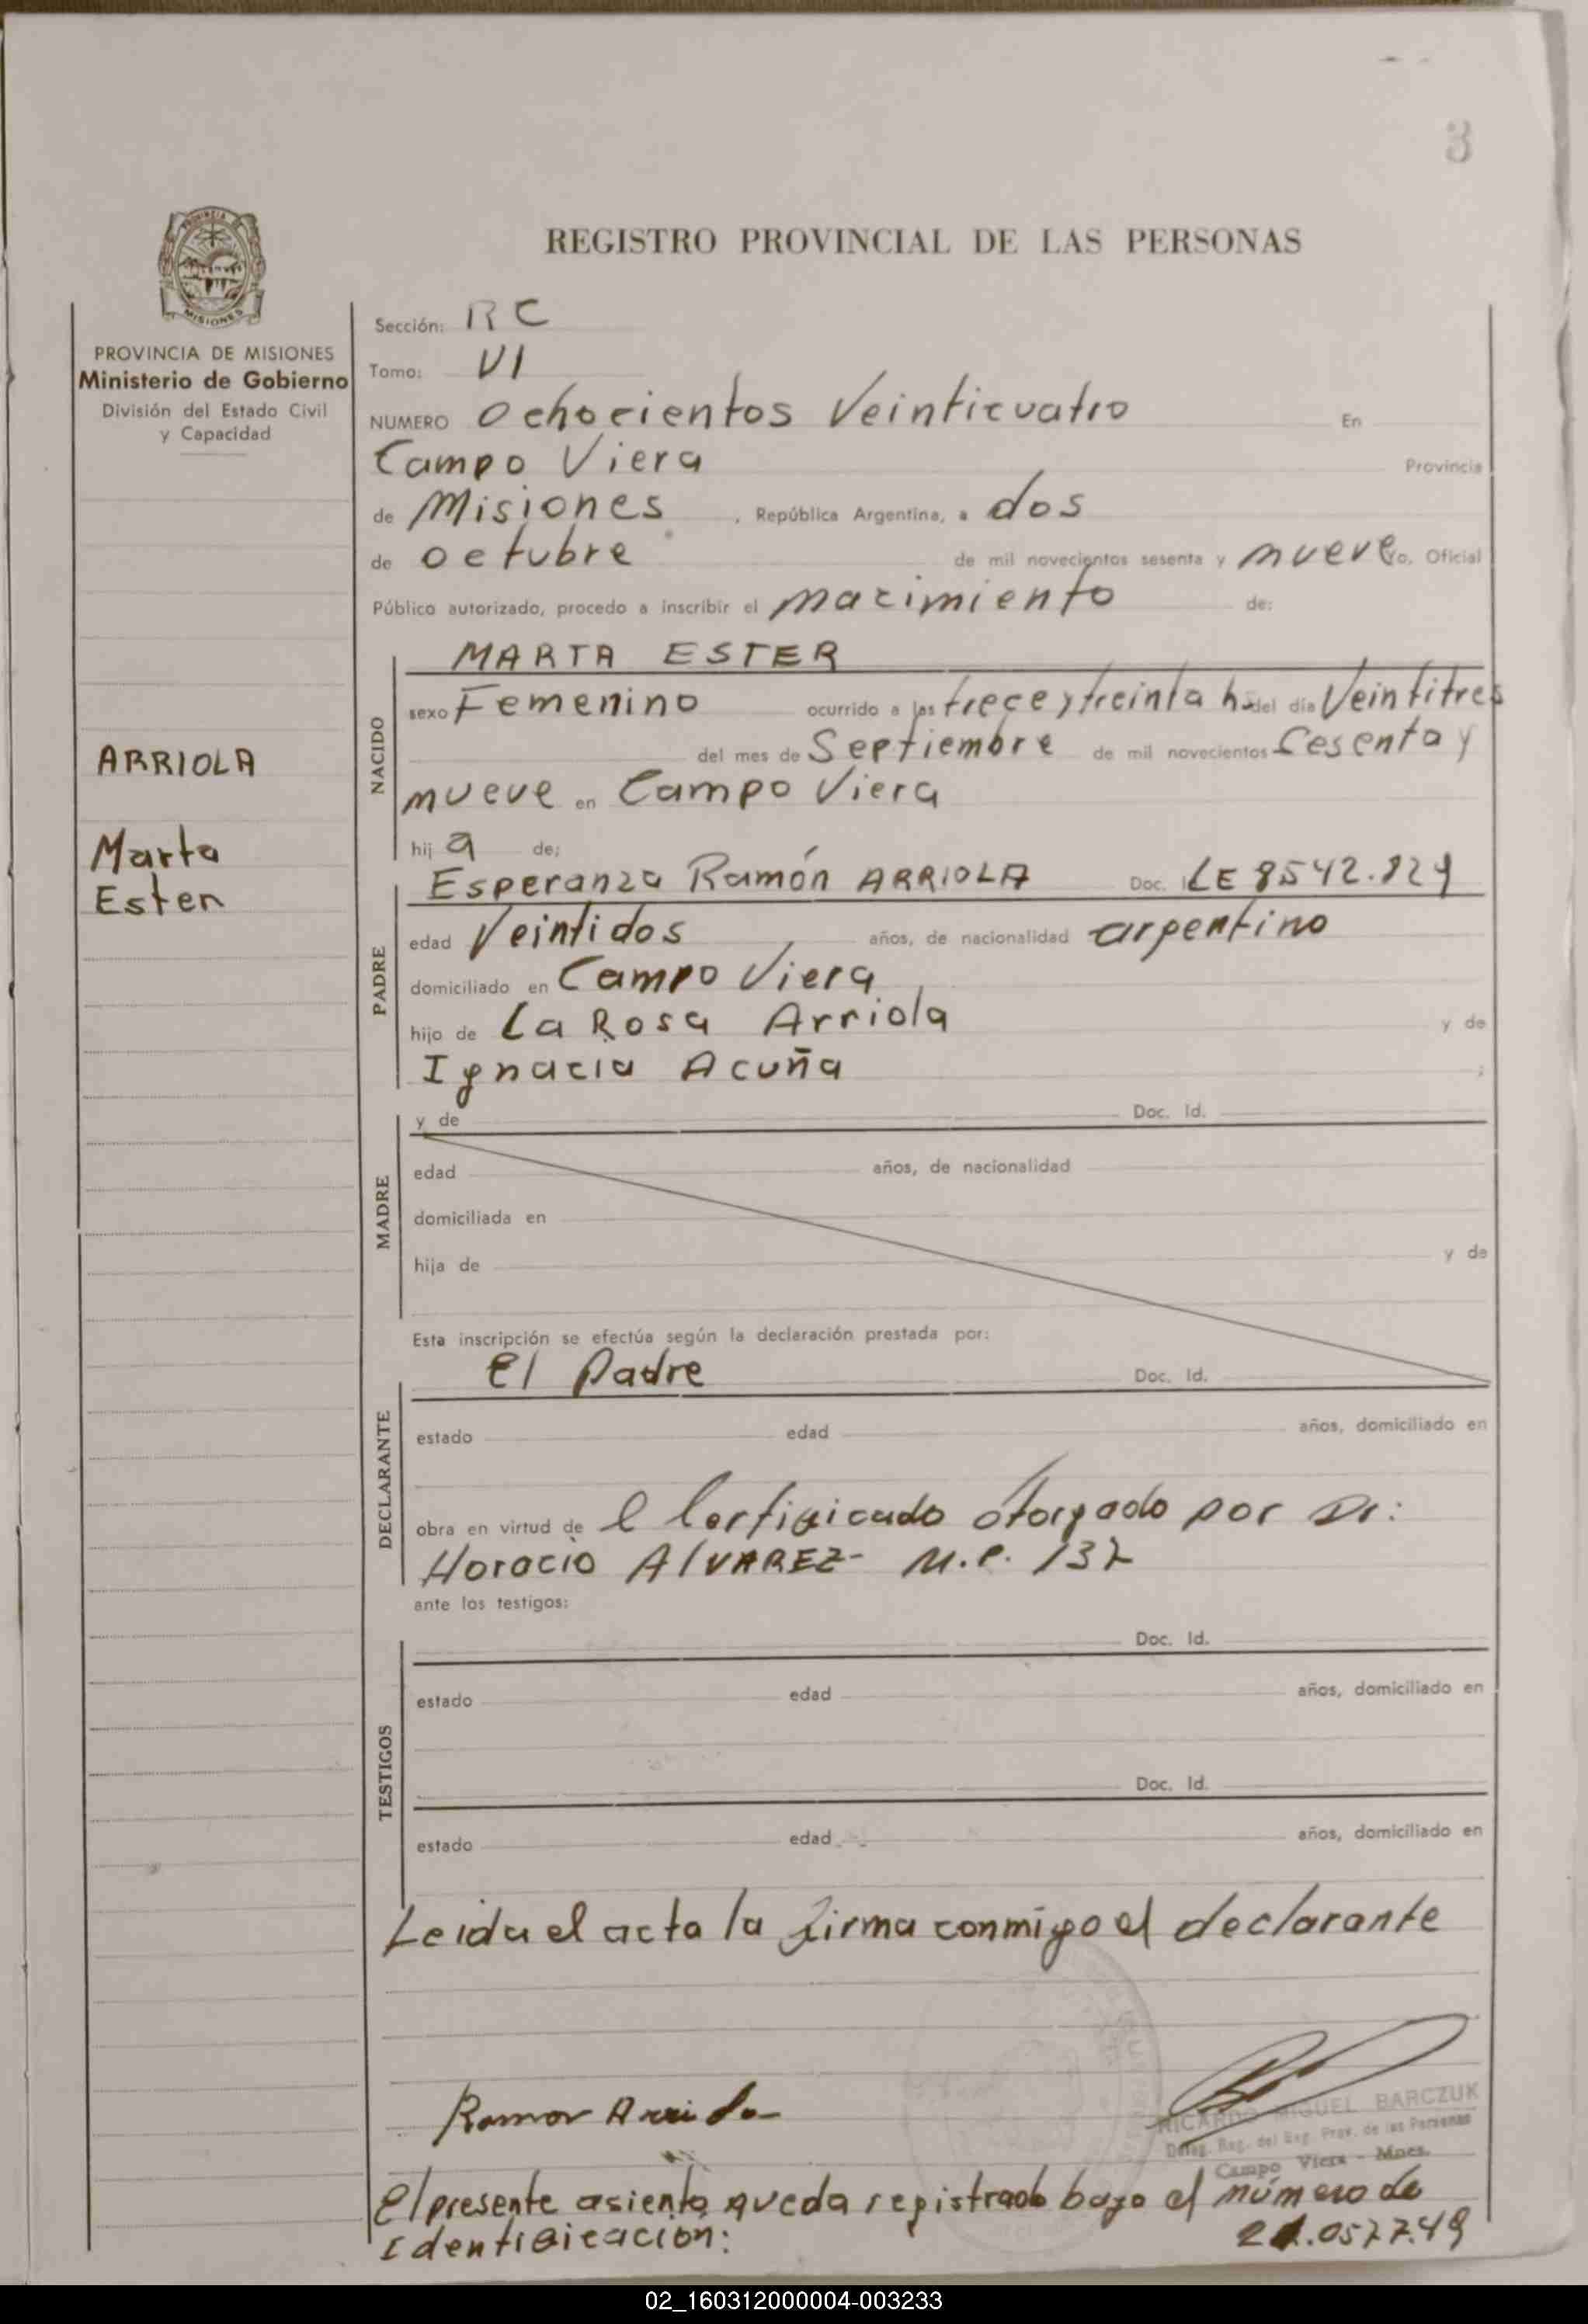 3
PROVINCIA
MISIONES
PROVINCIA DE MISIONES
Ministerio de Gobierno
División del Estado Civil
y Capacidad
ARRIOLA
Marta
Ester
REGISTRO PROVINCIAL DE LAS PERSONAS
Sección: RC
Tomo: VI
NUMERO Ochocientos Veinticuatro En
Campo Viera Provincia
de Misiones, República Argentina, a dos
de octubre de mil novecientos sesenta y nueve Yo, Oficial
Público autorizado, procedo a inscribir el nacimiento de:
NACIDO
MARTA ESTER
sexo Femenino ocurrido a las trece y treinta hs. del día Veintitres
del mes de Septiembre de mil novecientos Sesenta y
nueve en Campo Viera
hij a de:
PADRE
Esperanza Ramón ARRIOLA Doc. LE 8542.829
edad Veintidos años, de nacionalidad argentino
domiciliado en Campo Viera
hijo de La Rosa Arriola y de
Ignacia Acuña ;
MADRE
y de Doc. Id.
edad años, de nacionalidad
domiciliada en
hija de y de
Esta inscripción se efectúa según la declaración prestada por:
DECLARANTE
El Padre Doc. Id.
estado edad años, domiciliado en
obra en virtud de l Certificado otorgado por Dr:
Horacio ALVAREZ- M.P. 132
ante los testigos:
TESTIGOS
Doc. Id.
estado edad años, domiciliado en
Doc. Id.
estado edad años, domiciliado en
Leida el acta la firma conmigo el declarante
Ramon Arriola
RICARDO MIGUEL BARCZUK
Deleg. Reg. del Reg. Prov. de las Personas
Campo Viera - Mnes.
El presente asiento queda registrado bajo el número de
Identificación: 21.057.749
02_160312000004-003233